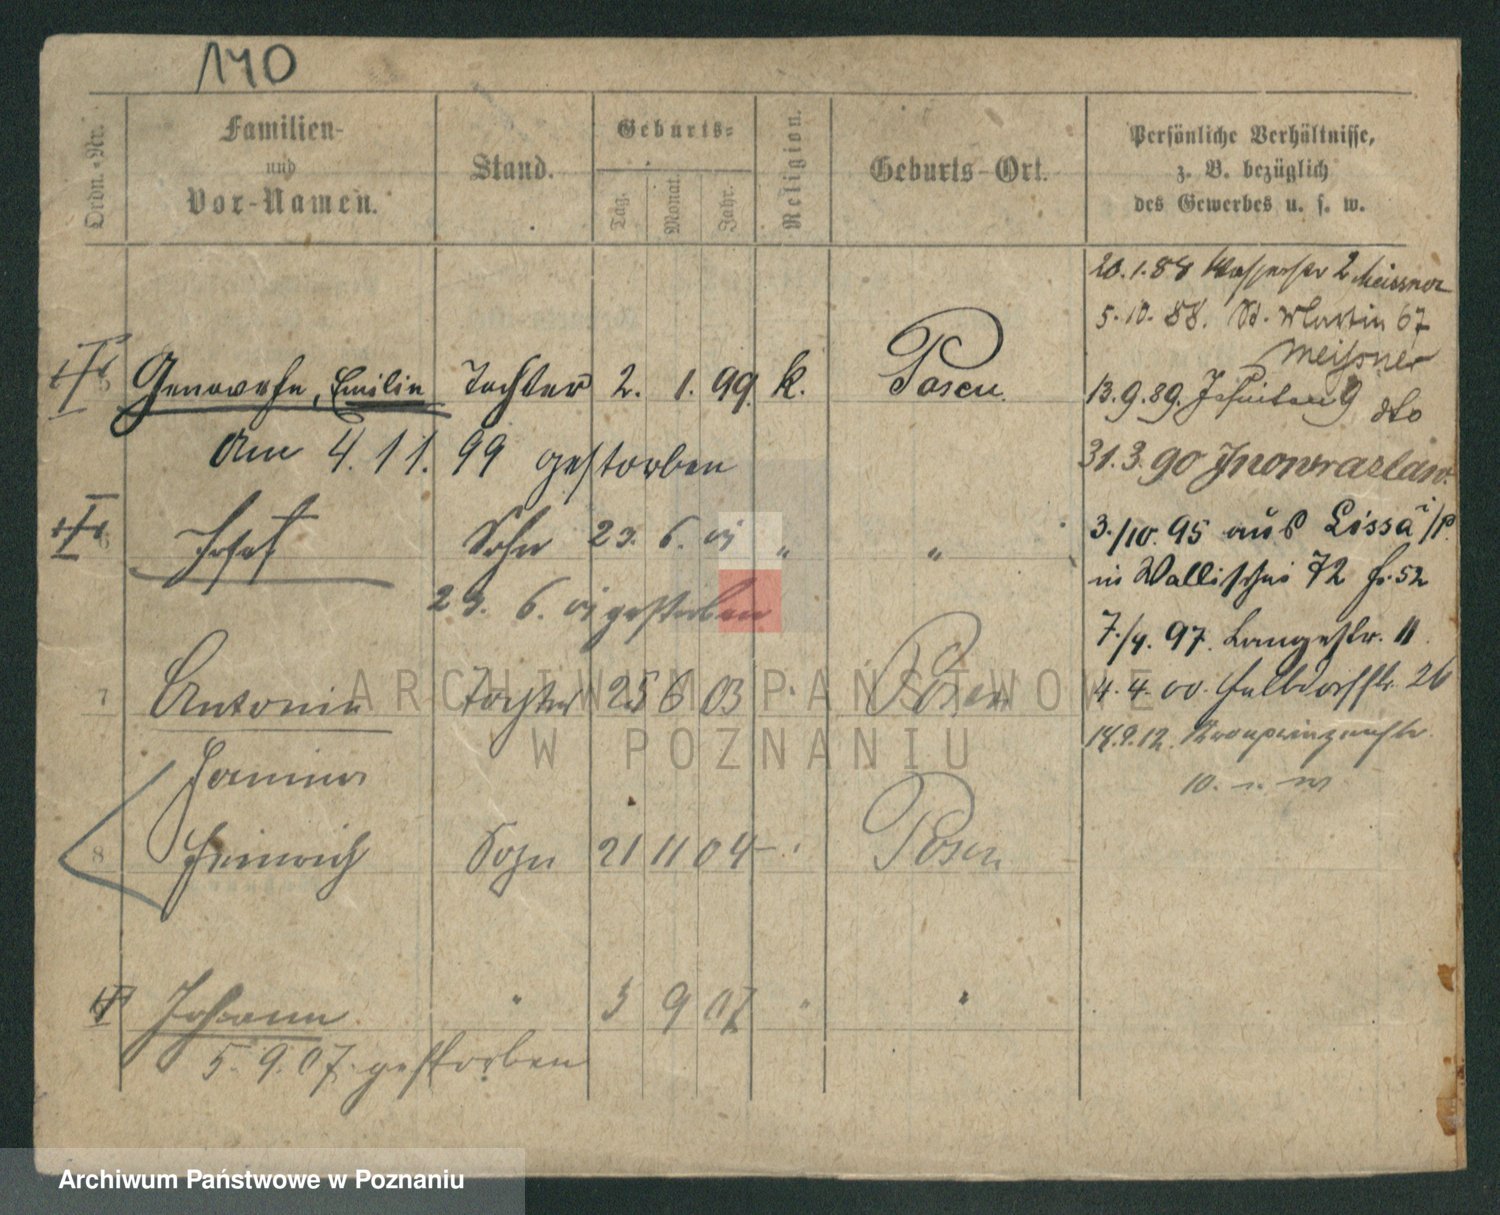 140
Ordn.-Nr.
Familien-
und
Vor-Namen.
Stand.
Geburts-
Tag.
Monat.
Jahr.
Religion.
Geburts-Ort.
Persönliche Verhältnisse,
z. B. bezüglich
des Gewerbes u. s. w.
20. 1. 88 2 Meissner
5. 10. 88. St. Martin 67
Meissner
Genowefa, Emilie Tochter 2. 1. 99. k. Posen
13. 9. 89. 9 dto
Am 4. 11. 99 gestorben
31. 3. 90 Inowrazlaw.
6 Josef Sohn 23. 6. 01 " "
3./10. 95 aus Lissa i/P.
in Wallischei 72 fr. 52
23. 6. 01 gestorben
7./4. 97. Langestr. 11.
7 Antonie Tochter 25 6 03 " Posen
4. 4. 00. Halbdorfstr. 26
18. 9. 12. Kronprinzenstr.
Janina
10.
8 Heinrich Sohn 21 11 04 " Posen
Johann " 3 9 07 " "
5. 9. 07. gestorben
ARCHIWUM PAŃSTWOWE
W POZNANIU
Archiwum Państwowe w Poznaniu